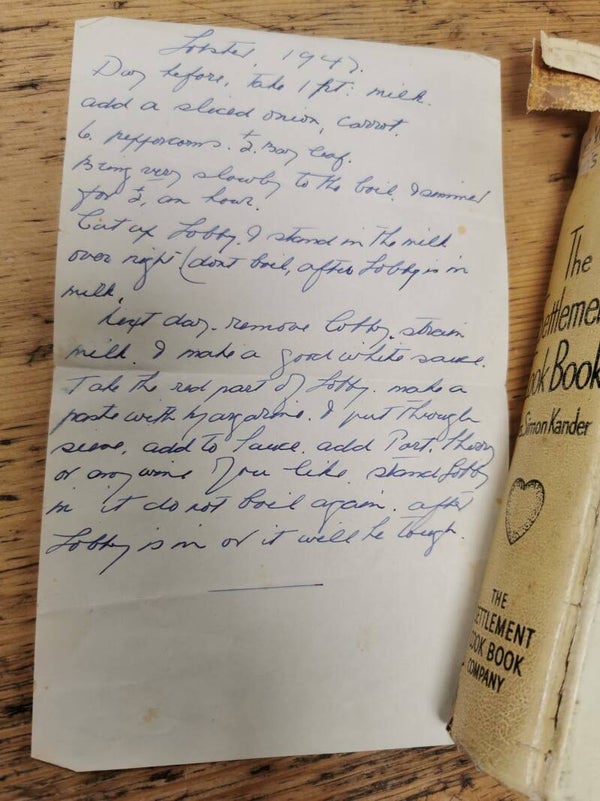 Lobster, 1947.
Day before, take 1 pt. milk.
add a sliced onion, carrot.
6. peppercorns. ½. Bay leaf.
Bring very slowly to the boil. & simmer
for ½, an hour.
Cut up Lobby. & stand in the milk
over night (dont boil, after Lobby is in
milk.
Next day. remove lobby. strain
milk. & make a good white sauce.
Take the red part of Lobby. make a
paste with Margarine. & put through
sieve, add to Sauce. add Port. Sherry
or any wine you like. stand Lobby
in it do not boil again. after
Lobby is in or it will be tough.
The
ettlemen
ok Book
Simon Kander
THE
ETTLEMENT
OK BOOK
COMPANY